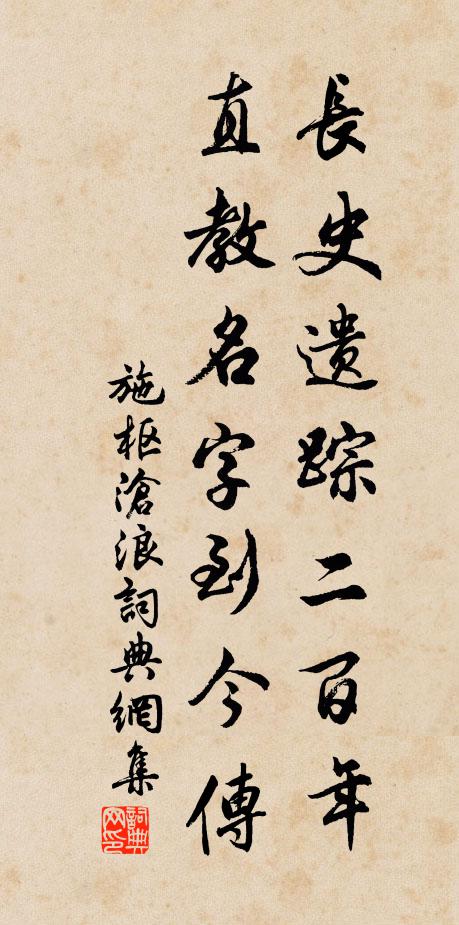 長史遗踪二百年
直教名字到今傳
施枢滄浪詞典網集
詞典
网印